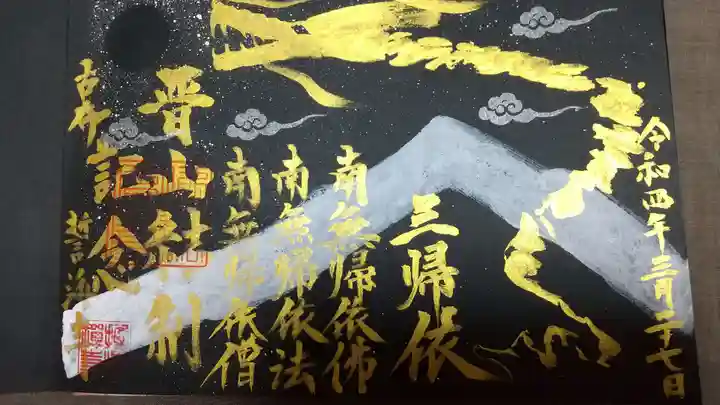 令和四年三月二十七日
三帰依
南無帰依佛
南無帰依法
南無帰依僧
晋山結制
記念